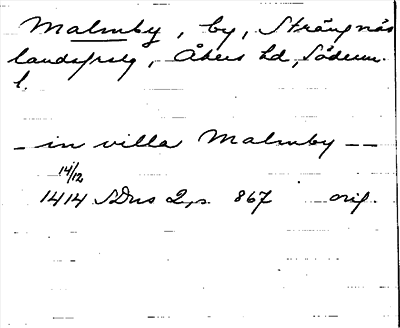 Malmby, by, Strängnäs
landsfrsg, Åkers hd, Söderm.
l.
- in villa Malmby --
14/12
1414 SDns 2, s. 867 orig.